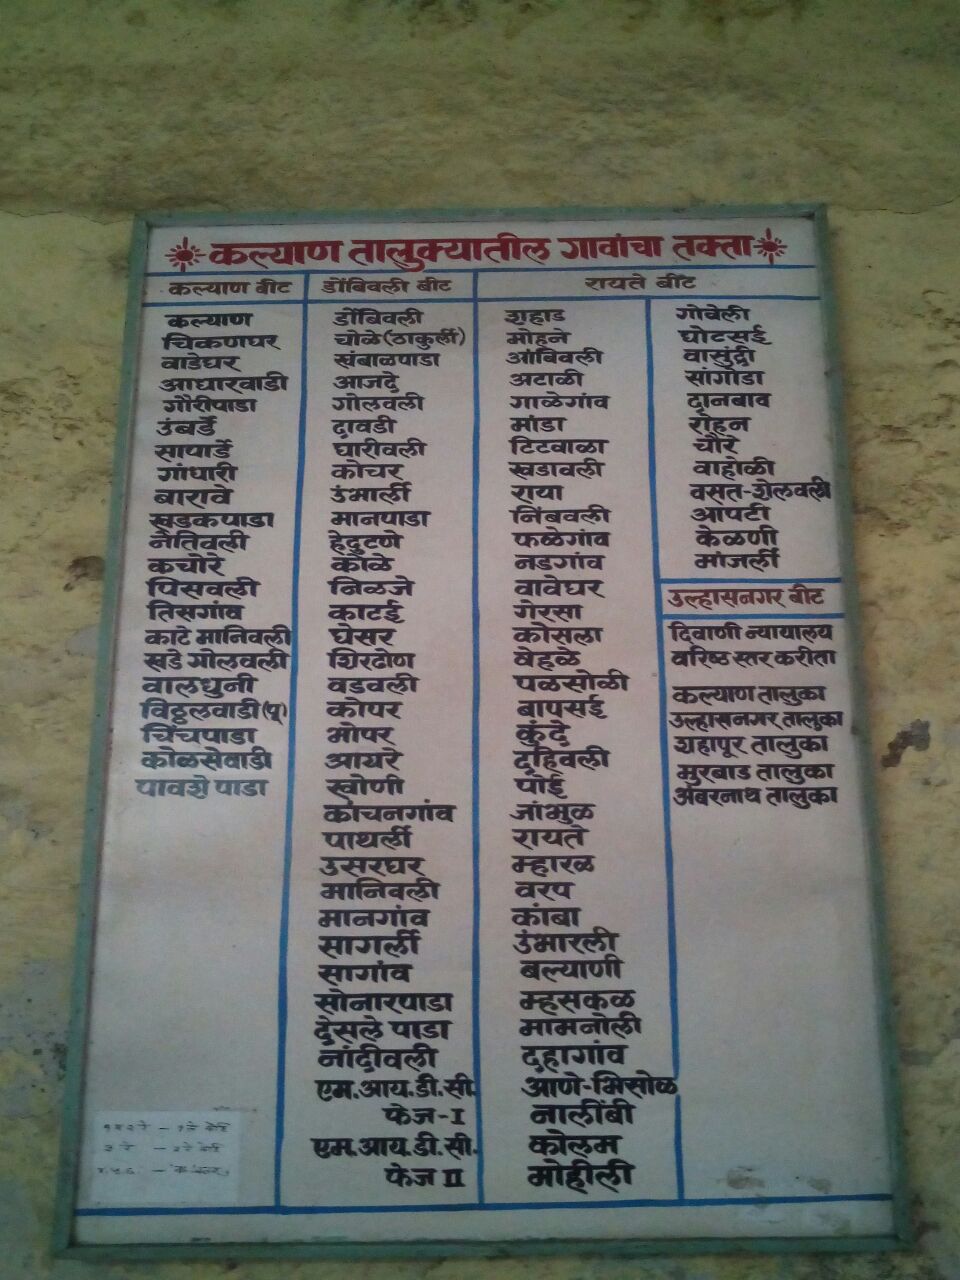 कल्याण तालुक्यातील गावांचा तक्ता
कल्याण बीट
कल्याण
चिकणघर
वाडेघर
आधारवाडी
गौरीपाडा
उंबर्डे
सापार्डे
गांधारी
बारावे
खडकपाडा
नेतिवली
कचोरे
पिसवली
तिसगांव
काटे मानिवली
खडे गोलवली
वालधुनी
विठ्ठलवाडी(पू)
चिंचपाडा
कोळसेवाडी
पावशे पाडा
डोंबिवली बीट
डोंबिवली
चोळे(ठाकुर्ली)
खंबाळपाडा
आजदे
गोलवली
दावडी
घारीवली
कोचर
उंभार्ली
मानपाडा
हेदुटणे
कोळे
निळजे
काटई
घेसर
शिरढोण
वडवली
कोपर
भोपर
आयरे
खोणी
कांचनगांव
पाथर्ली
उसरघर
मानिवली
मानगांव
सागर्ली
सागांव
सोनारपाडा
देसले पाडा
नांदीवली
एम.आय.डी.सी.
फेज-I
एम.आय.डी.सी.
फेज II
रायते बीट
शहाड
मोहने
आंबिवली
अटाळी
गाळेगांव
मांडा
टिटवाळा
खडावली
राया
निंबवली
फळेगांव
नडगांव
वावेघर
गेरसा
कोसला
वेहळे
पळसोळी
बापसई
कुंदे
दहिवली
पोई
जांभुळ
रायते
म्हारळ
वरप
कांबा
उंभारली
बल्याणी
म्हसकळ
मामनोली
दहागांव
आणे-भिसोळ
नालींबी
कोलम
मोहीली
गोवेली
घोटसई
वासुंद्री
सांगोडा
दानबाव
रोहन
चौरे
वाहोळी
वसत-शेलवली
आपटी
केळणी
मांजर्ली
उल्हासनगर बीट
दिवाणी न्यायालय
वरिष्ठ स्तर करीता
कल्याण तालुका
उल्हासनगर तालुका
शहापूर तालुका
मुरबाड तालुका
अंबरनाथ तालुका